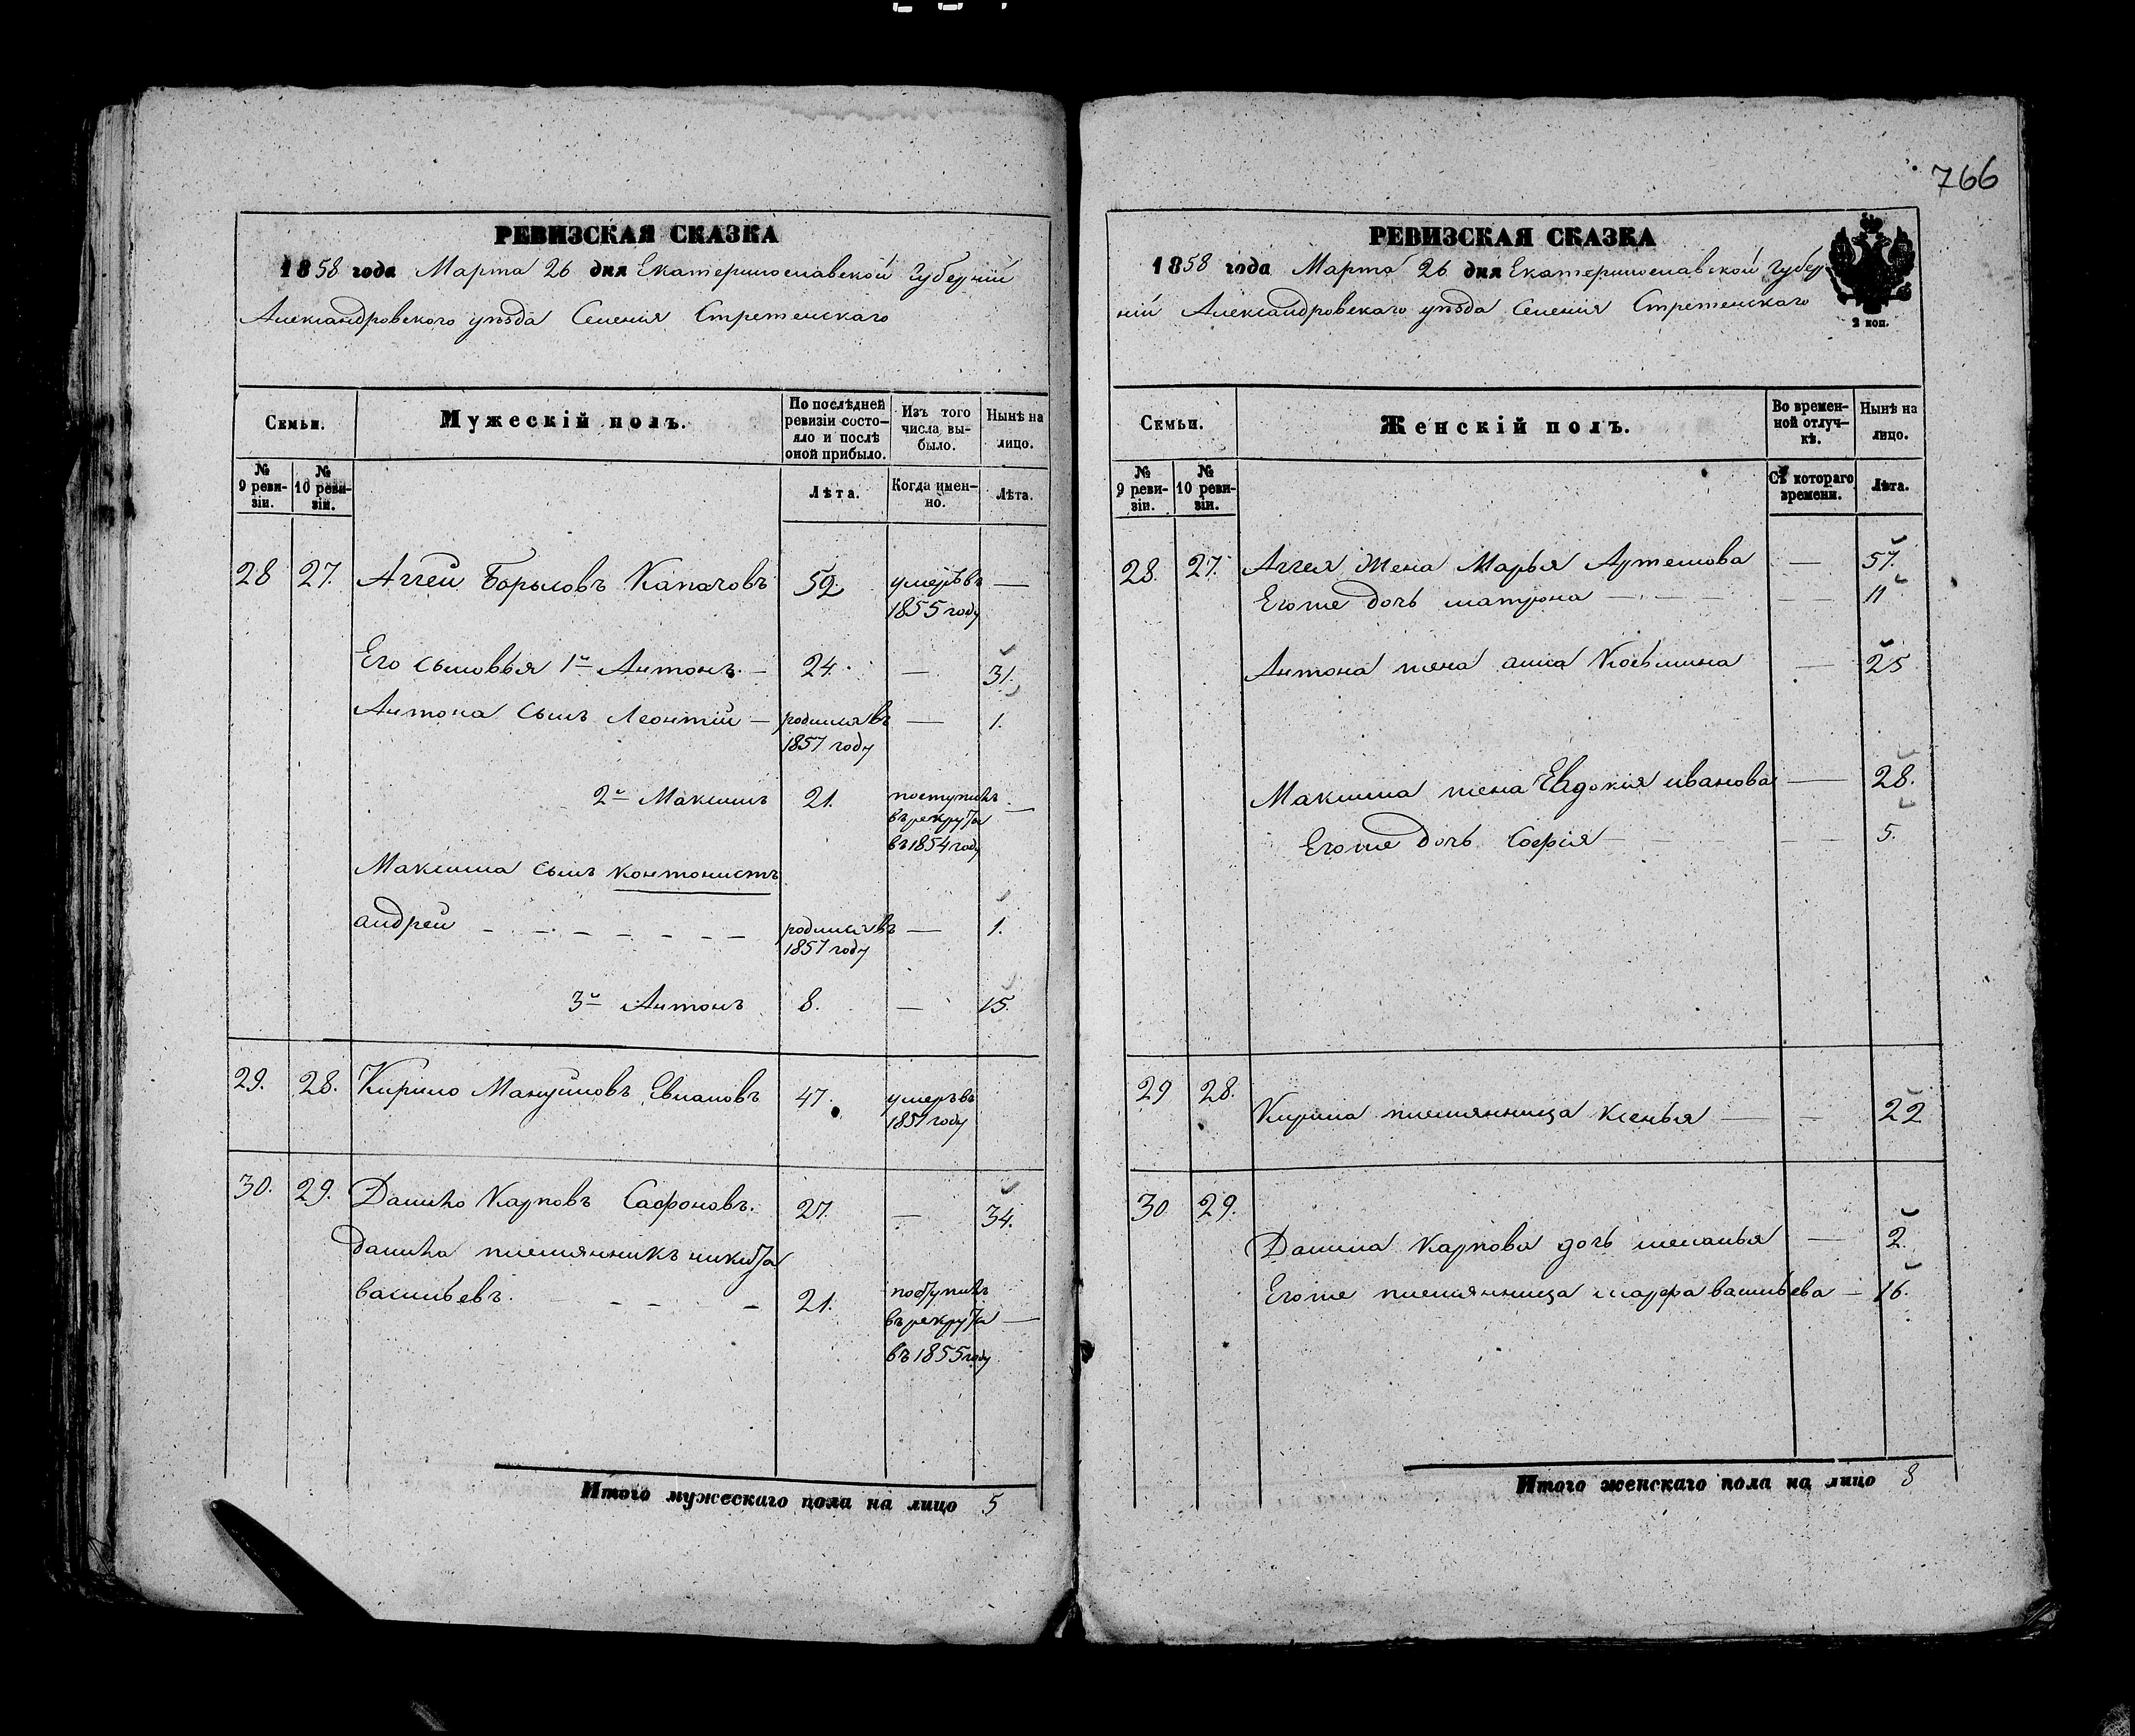 766
РЕВИЗСКАЯ СКАЗКА
1858 года Марта 26 дня Екатеринославской Губерніи
Александровского уѣзда Селенія Стретенскаго
Семьи.
Мужескій полъ.
По послѣдней ревизіи состояло и послѣ оной прибыло.
Изъ того числа выбыло.
Нынѣ на лицо.
№ 9 ревизіи.
№ 10 ревизіи.
Лѣта.
Когда именно.
Лѣта.
28 27. Аггей Борысовъ Капачовъ 52. умеръ въ —
1855 году
Его сыновья 1й Антонъ. — 24. — 31.
Антона сынъ Леонтій — родился въ — 1.
1857 году
2й Максимъ 21. поступилъ
въ рекруты —
въ 1854 году
Максима сынъ контонистъ
андрей — — — — — — — родился въ — 1.
1857 году
3й Антонъ 8. — 15.
29. 28. Кирило Мануйловъ 47. умеръ въ
1857 году
30. 29. Данило Карповъ Сафоновъ. 27. — 34.
данила племянникъ никита
васильевъ. — — — 21. поступилъ
въ рекруты —
въ 1855 году
Итого мужескаго пола на лицо 5
РЕВИЗСКАЯ СКАЗКА
1858 года Марта 26 дня Екатеринославской Губер
ніи Александровскаго уѣзда Селенія Стретенскаго
2 коп.
Семьи.
Женскій полъ.
Во временной отлучкѣ.
Нынѣ на лицо.
№ 9 ревизіи.
№ 10 ревизіи.
Съ котораго времени.
Лѣта.
28. 27. Аггея Жена Марья Артемова — 57.
Егоже дочь матрона — — — — — 11
Антона жена анна Козьмина — 25
Максима жена Евдокія иванова — 28.
Егоже дочь Софія — — — — — 5.
29 28.
Кирила племянница Ксенья — — 22
30 29.
Данила Карпова дочь меланья — 2.
Егоже племянница марфа васильева — 16.
Итого женскаго пола на лицо 8